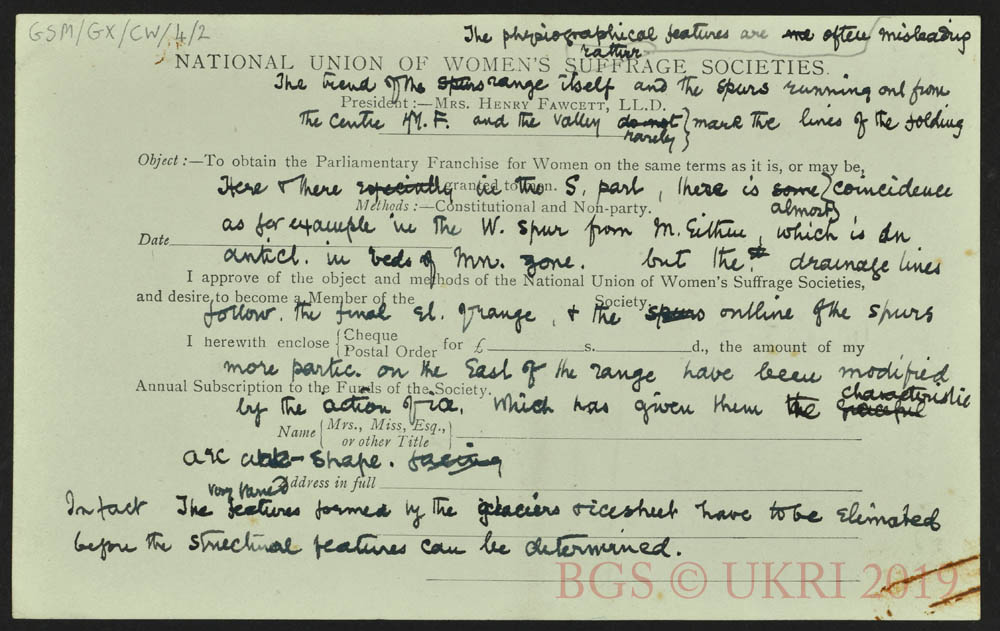 GSM/GX/CW/4/2
The physiographical features are me often misleading
rather
NATIONAL UNION OF WOMEN'S SUFFRAGE SOCIETIES.
The trend of the spurs range itself and the spurs running out from
President:—MRS. HENRY FAWCETT, LL.D.
the centre M.F. and the valley do not } mark the lines of the folding
rarely }
Object:—To obtain the Parliamentary Franchise for Women on the same terms as it is, or may be,
granted to men.
Here & there especially in the S. part, there is some } coincidence
almost }
Methods:—Constitutional and Non-party.
as for example in the W. spur from M. Eithin, which is an
Date
anticl. in beds of Mn. zone. but the drainage lines
I approve of the object and methods of the National Union of Women's Suffrage Societies,
and desire to become a Member of the Society.
follow. the final el. of range, & the spurs outline of the spurs
I herewith enclose { Cheque Postal Order for £ s. d., the amount of my
more partic. on the East of the range have been modified
Annual Subscription to the Funds of the Society.
characteristic
by the action of ice, which has given them the graceful
Name { Mrs., Miss, Esq., or other Title }
arc shape. facing
Address in full
very varied
In fact The features formed by the glaciers & icesheet have to be Elimated
before the structural features can be determined.
BGS © UKRI 2019